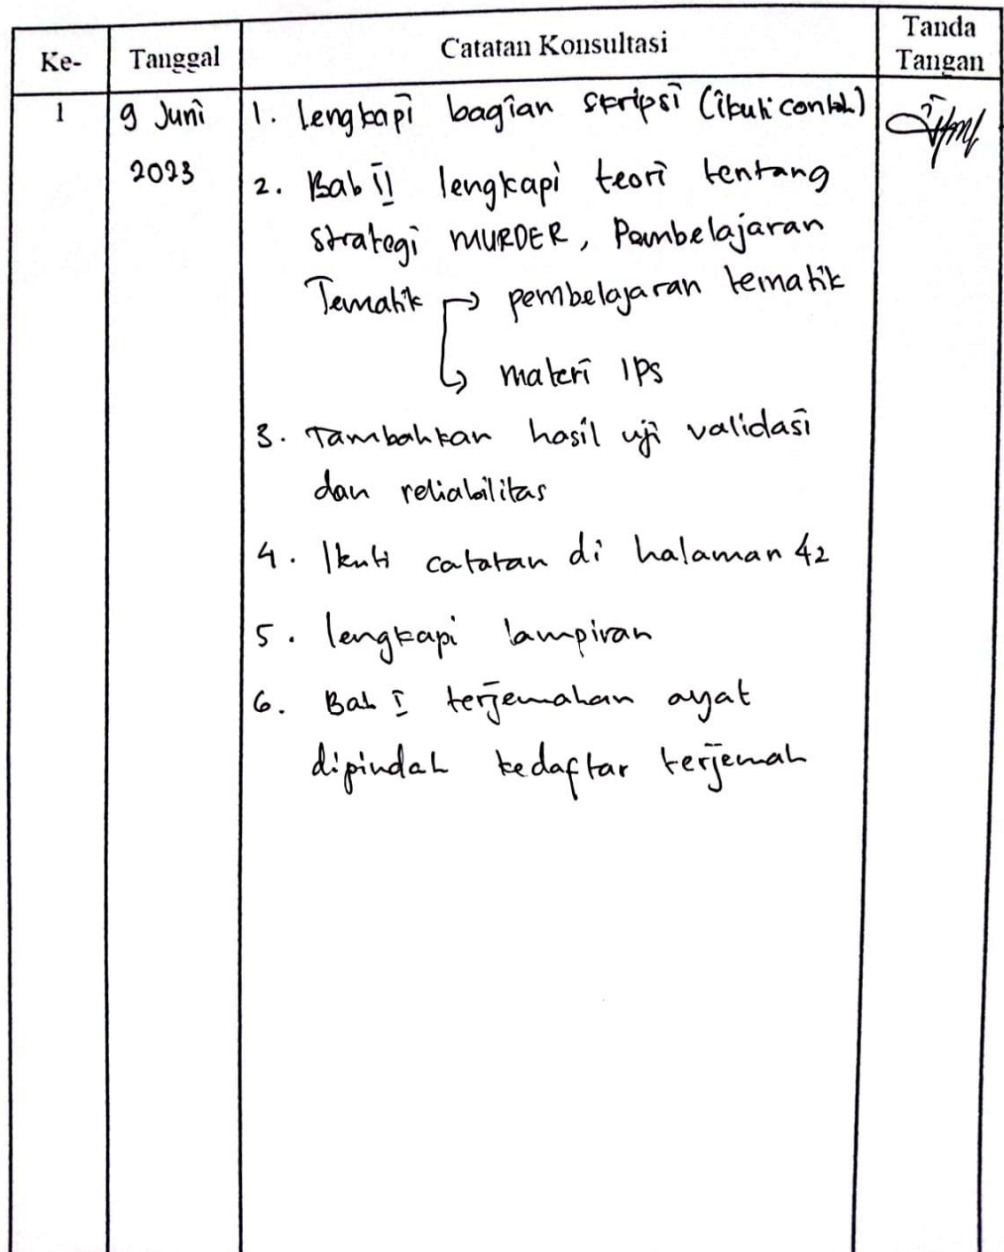 Ke- Tanggal Catatan Konsultasi Tanda Tangan
1 9 Juni 2023
1. lengkapi bagian skripsi (ikuti contoh)
2. Bab II lengkapi teori tentang
strategi MURDER, Pembelajaran
Tematik → pembelajaran tematik
↳ materi IPS
3. Tambahkan hasil uji validasi
dan reliabilitas
4. Ikuti catatan di halaman 42
5. lengkapi lampiran
6. Bab I terjemahan ayat
dipindah kedaftar terjemah